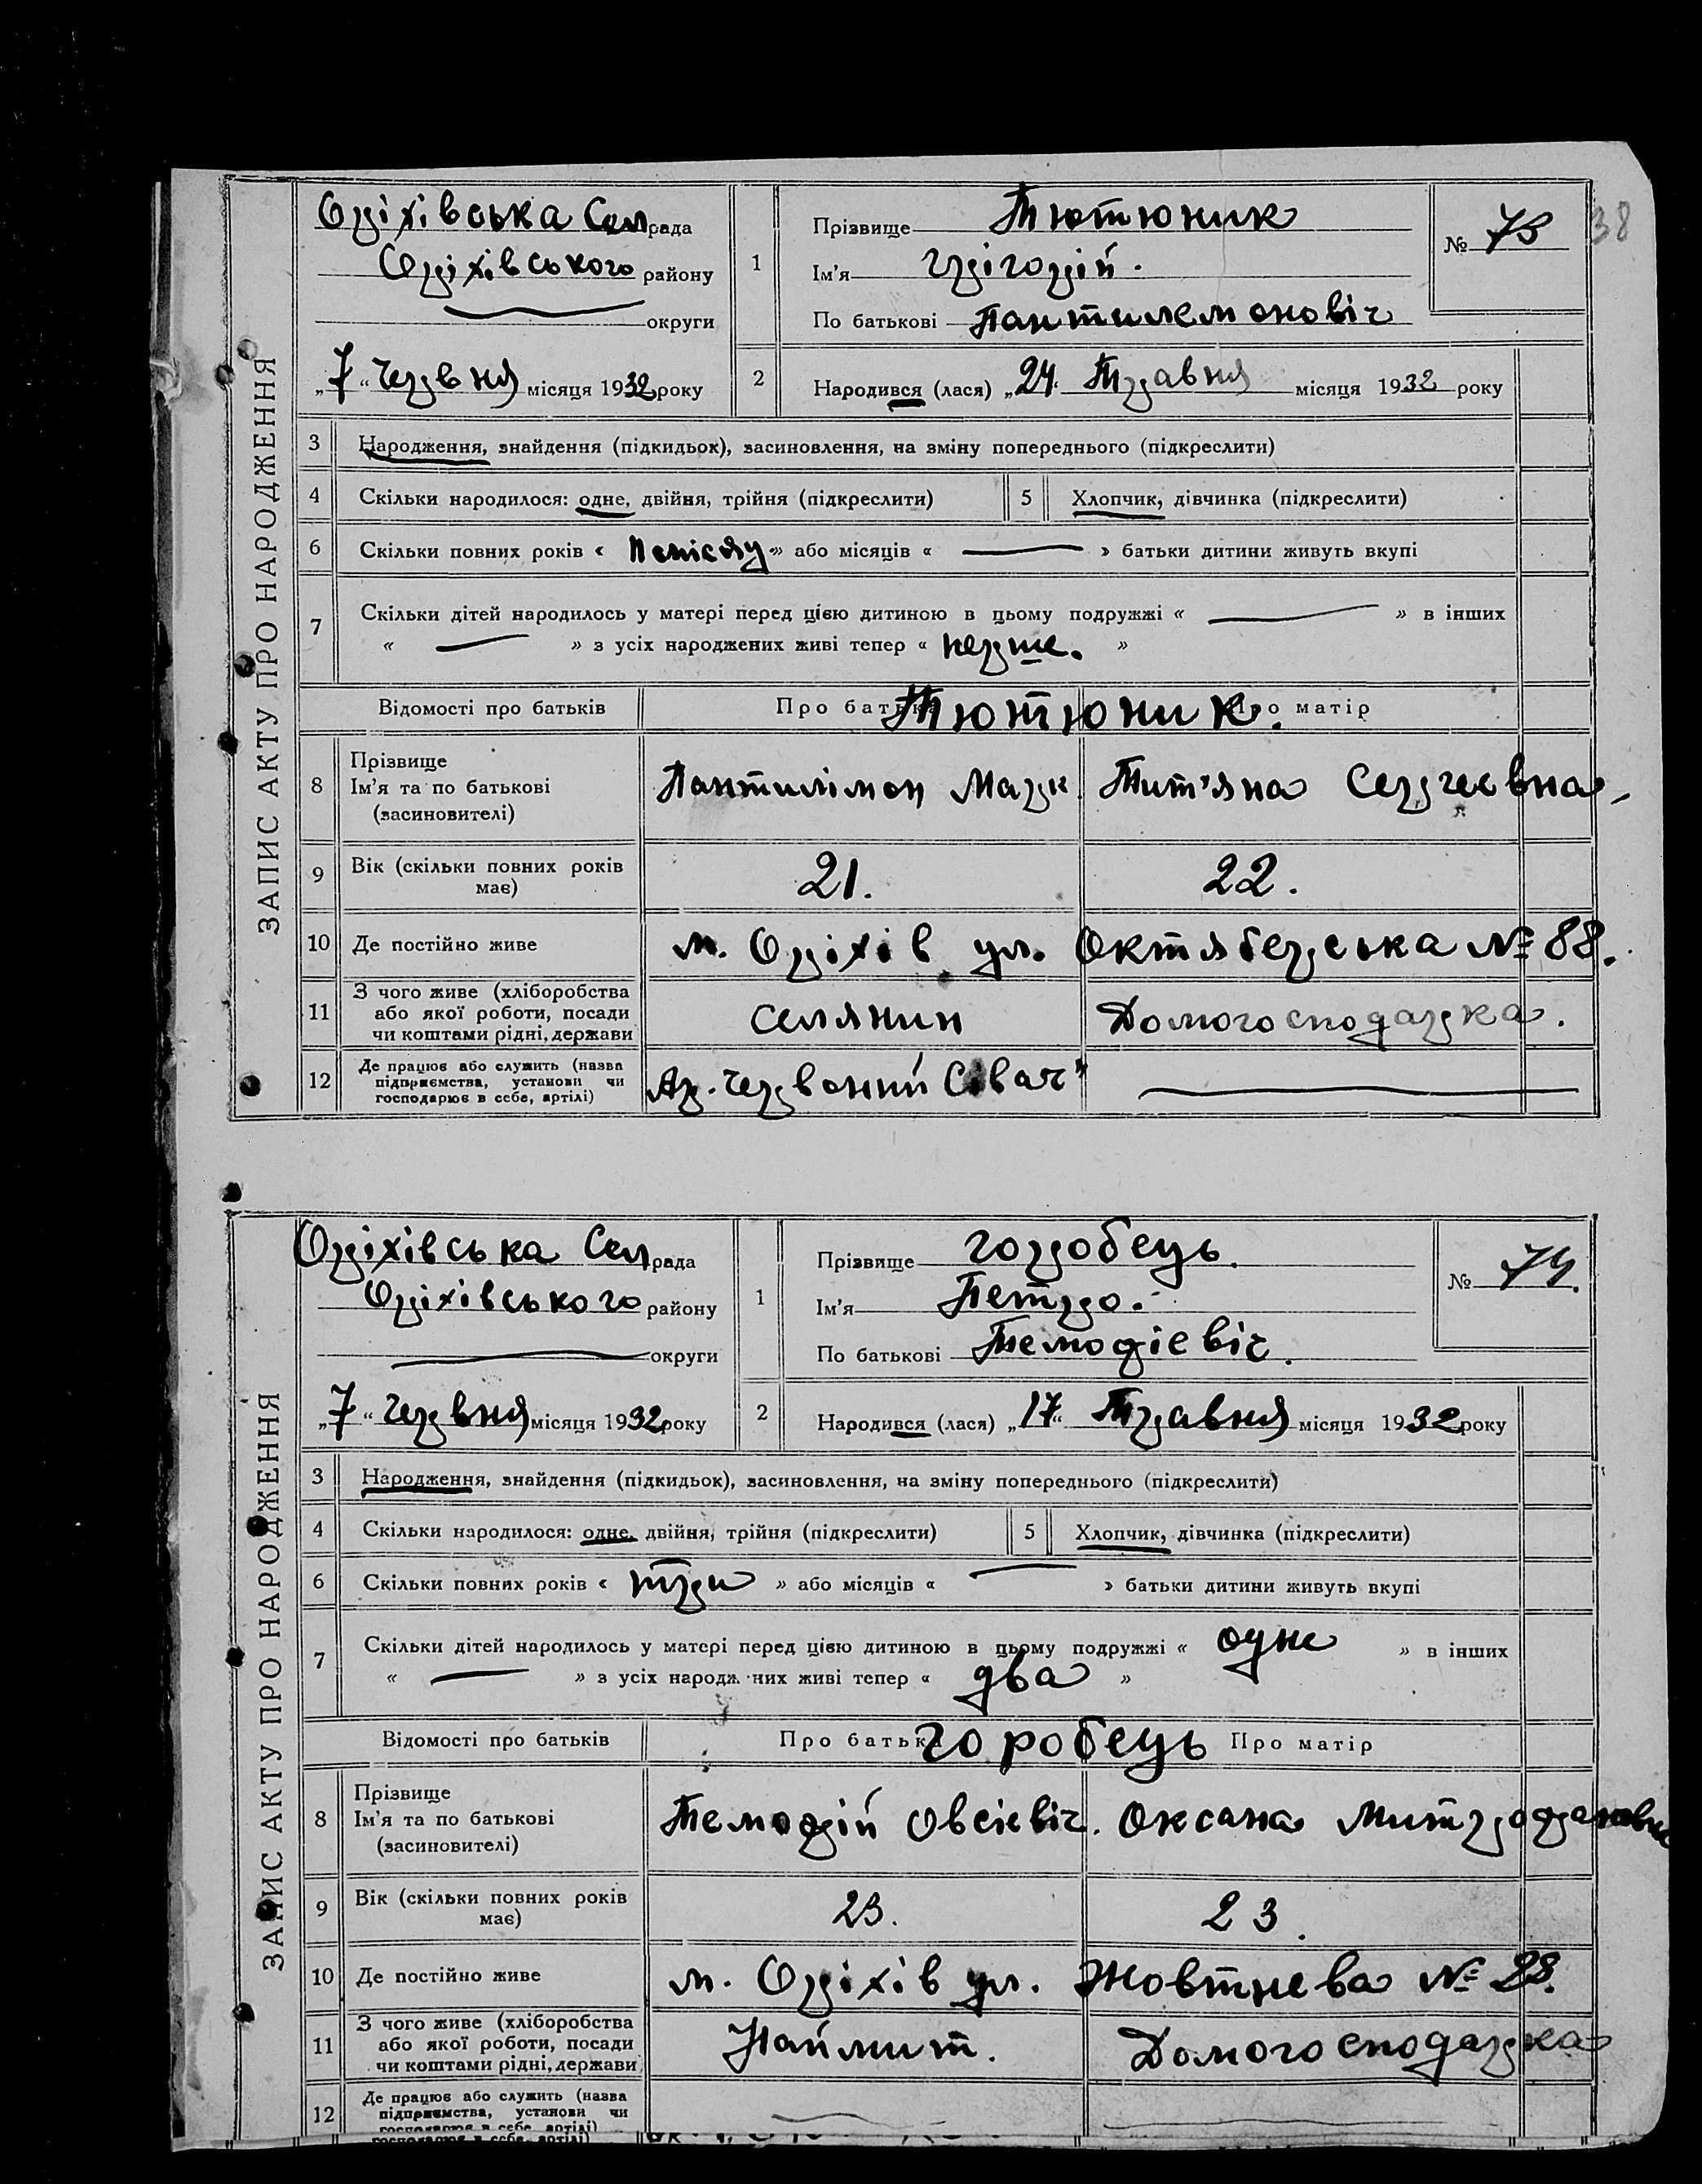 38
ЗАПИС АКТУ ПРО НАРОДЖЕННЯ
Оріхівська Сел рада
Оріхівського району
округи
„7“ Червня місяця 1932 року
1
Прізвище Тютюник
Ім'я Грігорій.
По батькові Пантилемоновіч
№ 73
2
Народився (лася) „24“ Травня місяця 1932 року
3 Народження, знайдення (підкидьок), засиновлення, на зміну попереднього (підкреслити)
4 Скільки народилося: одне, двійня, трійня (підкреслити) 5 Хлопчик, дівчинка (підкреслити)
6 Скільки повних років « » або місяців « » батьки дитини живуть вкупі
7 Скільки дітей народилось у матері перед цією дитиною в цьому подружжі « » в інших
« » з усіх народжених живі тепер « перше. »
Відомості про батьків Про батька Тютюник. Про матір
8 Прізвище
Ім'я та по батькові
(засиновителі)
Пантилімон Марк. Тит'яна Сергеєвна
9 Вік (скільки повних років
має)
21. 22.
10 Де постійно живе м. Оріхів ул. Октяберська № 88.
11 З чого живе (хліборобства
або якої роботи, посади
чи коштами рідні, держави
селянин Домогосподарка.
12 Де працює або служить (назва
підприємства, установи чи
господарює в себе, артілі)
Ар. Червоний Сівач"
ЗАПИС АКТУ ПРО НАРОДЖЕННЯ
Оріхівська Сел рада
Оріхівського району
округи
„7“ Червня місяця 1932 року
1
Прізвище Горобець.
Ім'я Петро.
По батькові Темофіевіч.
№ 74.
2
Народився (лася) „17“ Травня місяця 1932 року
3 Народження, знайдення (підкидьок), засиновлення, на зміну попереднього (підкреслити)
4 Скільки народилося: одне, двійня, трійня (підкреслити) 5 Хлопчик, дівчинка (підкреслити)
6 Скільки повних років « три » або місяців « » батьки дитини живуть вкупі
7 Скільки дітей народилось у матері перед цією дитиною в цьому подружжі « одне » в інших
« » з усіх народжених живі тепер « два »
Відомості про батьків Про батька Горобець Про матір
8 Прізвище
Ім'я та по батькові
(засиновителі)
Темофій Овсієвіч. Оксана Митрофановна
9 Вік (скільки повних років
має)
23. 23.
10 Де постійно живе м. Оріхів ул. Жовтнева № 28.
11 З чого живе (хліборобства
або якої роботи, посади
чи коштами рідні, держави
Наймит. Домогосподарка
12 Де працює або служить (назва
підприємства, установи чи
господарює в себе, артілі)
господарює в себе, артілі)